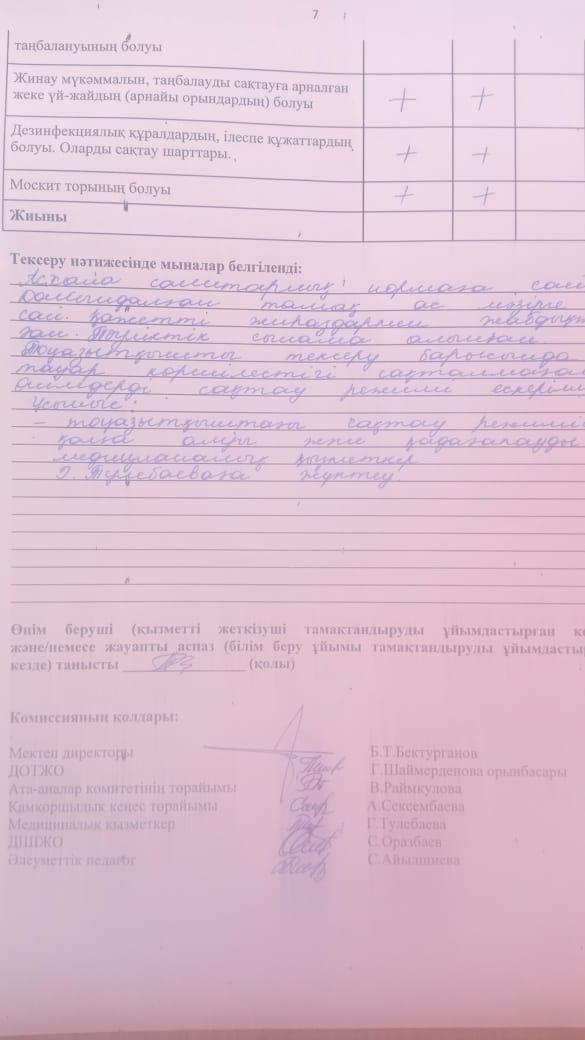 7
таңбалануының болуы
Жинау мүкәммалын, таңбалауды сақтауға арналған
жеке үй-жайдың (арнайы орындардың) болуы
+ +
Дезинфекциялық құралдардың, ілеспе құжаттардың
болуы. Оларды сақтау шарттары.
+ +
Москит торының болуы + +
Жиыны
Тексеру нәтижесінде мыналар белгіленді:
Асхана санитарлық нормаға сай
тамақ ас мәзірге
сай. Қажетті жабдықт
ған. Тәуліктік сынама алынған.
Тоңазытқышты тексеру барысында
тауар көршілестігі сақталмаған
өнімдерді сақтау режимі ескерілм
Ұсыныс:
– тоңазытқыштағы сақтау режимін
қолға алуды және қадағалауды
медициналық қызметкер
Г. Тулебаеваға жүктеу.
Өнім беруші (қызметті жеткізуші тамақтандыруды ұйымдастырған ке
және/немесе жауапты аспаз (білім беру ұйымы тамақтандыруды ұйымдастыр
кезде) танысты (қолы)
Комиссияның қолдары:
Мектеп директоры Б.Т.Бектурганов
ДОТЖО Г.Шаймерденова орынбасары
Ата-аналар комитетінің төрайымы В.Раймкулова
Қамқоршылық кеңес төрайымы А.Сексембаева
Медициналық қызметкер Г.Тулебаева
ДШІЖО С.Оразбаев
Әлеуметтік педагог С.Айылшиева